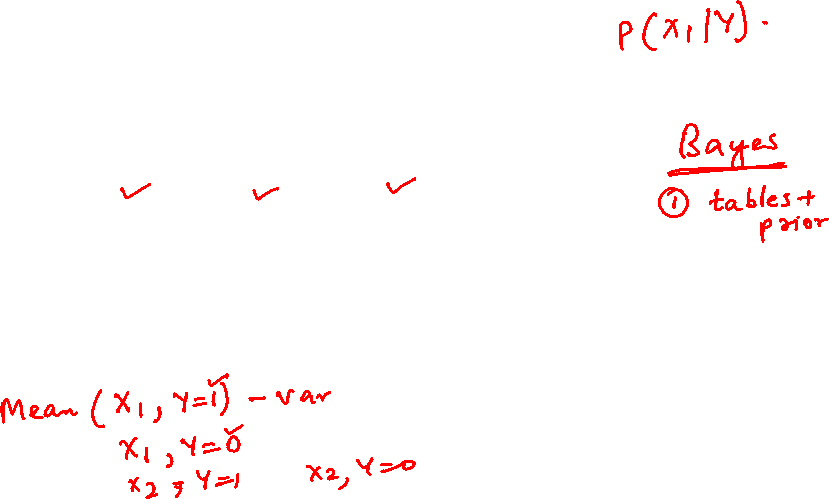 P(X1|Y).
Bayes
✓ ✓ ✓
① tables +
prior
Mean (X1, Y=1) - var
X1, Y=0
X2, Y=1 X2, Y=0